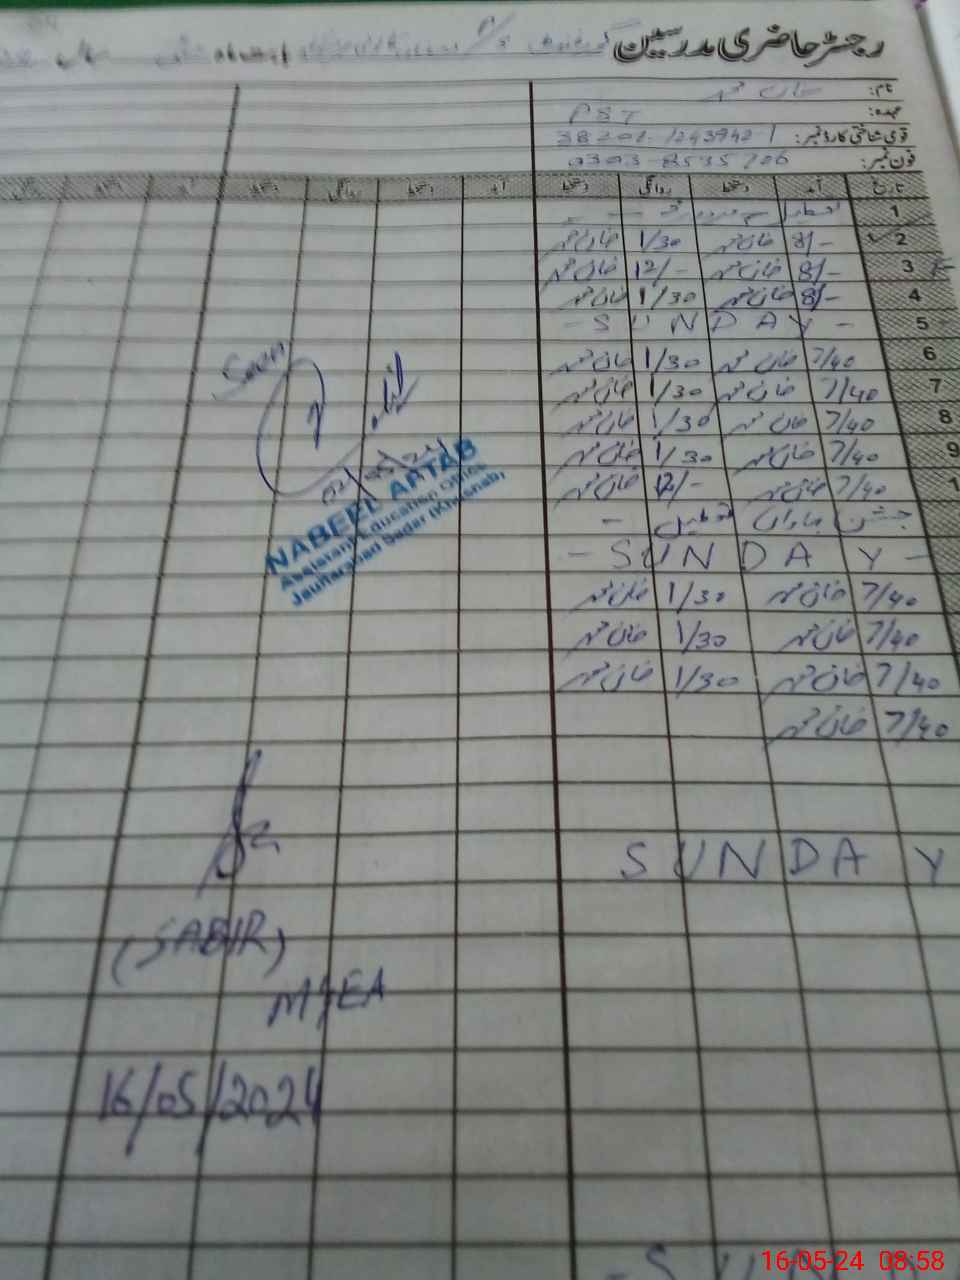 رجسٹر حاضری مدرسین
نام: خان محمد
عہدہ: PST
قومی شناختی کارڈ نمبر: 38201-1243942-1
فون نمبر: 0303-8535706
تاریخ آمد دستخط روانگی دستخط آمد دستخط روانگی دستخط آمد دستخط
1
2 8/- خان محمد 1/30 خان محمد
3 8/- خان محمد 12/- خان محمد
4 8/- خان محمد 1/30 خان محمد
5 - S U N D A Y -
6 7/40 خان محمد 1/30 خان محمد
7 7/40 خان محمد 1/30 خان محمد
8 7/40 خان محمد 1/30 خان محمد
9 7/40 خان محمد 1/30 خان محمد
1 7/40 خان محمد 12/- خان محمد
- S U N D A Y -
7/40 خان محمد 1/30 خان محمد
7/40 خان محمد 1/30 خان محمد
7/40 خان محمد 1/30 خان محمد
7/40 خان محمد
S U N D A Y
Seen
02/05/24
NABEEL AFTAB
Assistant Education Officer
Jauharabad Sadar (Khushab)
(SABIR)
MEA
16/05/2024
16-05-24 08:58